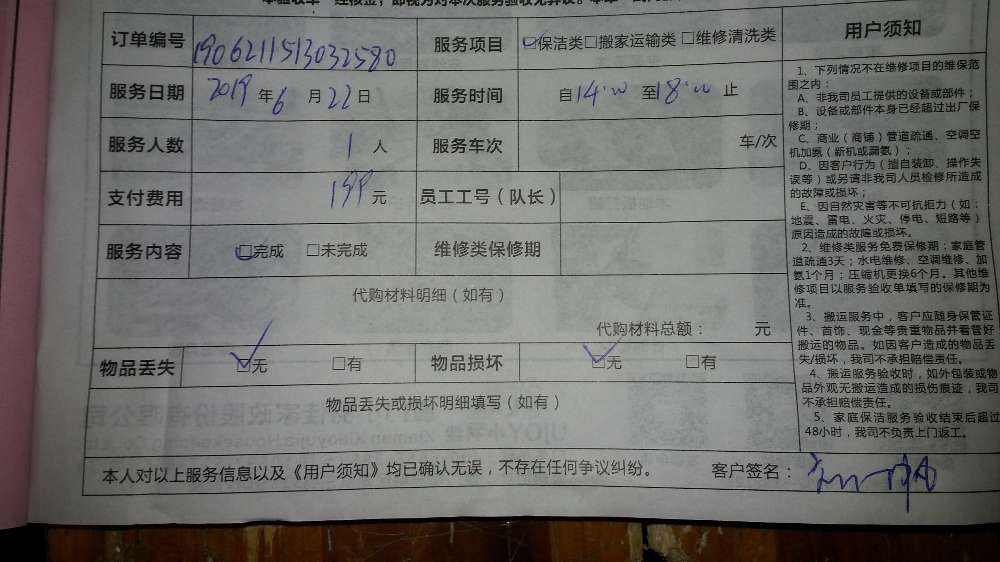 订单编号 1906211513032580 服务项目 ☑保洁类□搬家运输类 □维修清洗类
服务日期 2019 年 6 月 22 日 服务时间 自 14:00 至 18:00 止
服务人数 1 人 服务车次 车/次
支付费用 199 元 员工工号（队长）
服务内容 ☑完成 □未完成 维修类保修期
代购材料明细（如有）
代购材料总额： 元
物品丢失 ☑无 □有 物品损坏 ☑无 □有
物品丢失或损坏明细填写（如有）
本人对以上服务信息以及《用户须知》均已确认无误，不存在任何争议纠纷。 客户签名：
用户须知
1、下列情况不在维修项目的维保范
围之内：
A、非我司员工提供的设备或部件；
B、设备或部件本身已经超过出厂保
修期；
C、商业（商铺）管道疏通、空调空
机加氨（新机或漏氨）；
D、因客户行为（擅自装卸、操作失
误等）或另请非我司人员检修所造成
的故障或损坏；
E、因自然灾害等不可抗拒力（如：
地震、雷电、火灾、停电、短路等）
原因造成的故障或损坏。
2、维修类服务免费保修期：家庭管
道疏通3天；水电维修、空调维修、加
氨1个月；压缩机更换6个月。其他维
修项目以服务验收单填写的保修期为
准。
3、搬运服务中，客户应随身保管证
件、首饰、现金等贵重物品并看管好
搬运的物品。如因客户造成的物品丢
失/损坏，我司不承担赔偿责任。
4、搬运服务验收时，如外包装或物
品外观无搬运造成的损伤痕迹，我司
不承担赔偿责任。
5、家庭保洁服务验收结束后超过
48小时，我司不负责上门返工。